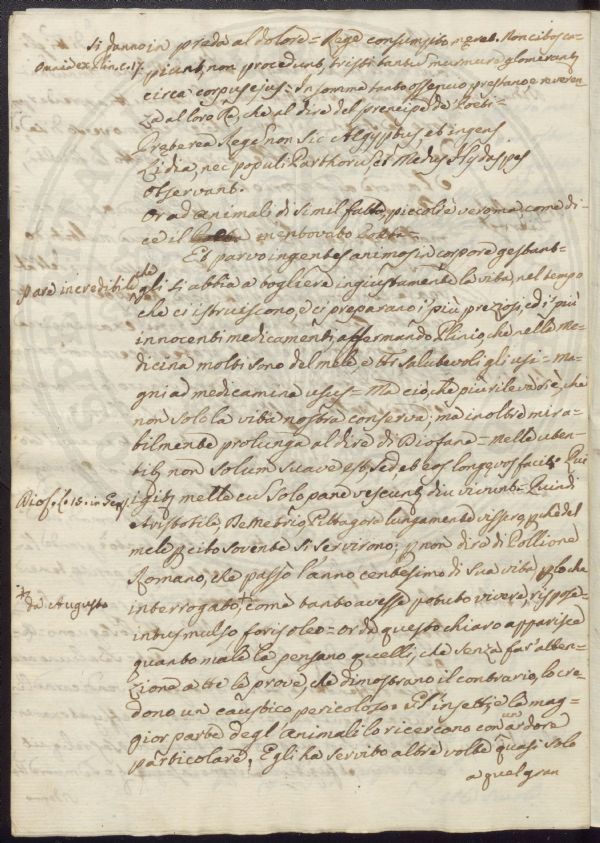 si danno in preda al dolore = Rege consumpto mœret. Non cibos ca=
Omnia ex Plin. c. 17.
piunt, non procedunt, tristi tantum murmure glomerantur
circa corpus ejus = In somma tanto ossequio prestano e reveren=
za al loro Rè, che al dire del prencipe de Poeti =
Præterea Regem non sic Ægyptus, et ingens
Lidia, nec populi Parthorum, et Medus Hydaspes
Observant.
Or ad animali di simil fatta piccoli è vero ma, come di=
ce il mentovato Poeta =
Et parvo ingentes animos in corpore gestant =
pare incredibile che
gli si abbia a togliere ingiustamente la vita, nel tempo
che ci istruiscono, e ci preparano i più preziosi, ed i più
innocenti medicamenti, affermando Plinio, che nelle me=
dicina molti sono del mele e salutevoli gli usi = ma=
gni ad medicamina usus = Ma ciò, che più rileva si è, che
non solo la vita nostra conserva; ma inoltre mira=
bilmente prolunga al dire di Diofane = melle uten=
tib. non solum suave est, sed et eos longevos facit. Qui
Diof. l. 15. in Geop.
igitur melle cum solo pane vescuntur diu vivunt = Quindi
Aristotile, Demetrio, Pittagora lungamente vissero, perchè del
mele per cibo sovente si servirono; per non dire di Pollione
Romano, che passò l'anno centesimo di sua vita, per lo che
+ da Augusto
interrogato + come tanto avesse potuto vivere, rispose =
intus mulso foris oleo = Or da questo chiaro apparisce
quanto male la pensano quelli, che senza far' atten=
zione a tte le prove, che dimostrano il contrario, lo cre=
dono un caustico pericoloso = Gl'insetti, e la mag=
gior parte degl'animali lo ricercano con un ardore
particolare. Egli ha servito altre volte quasi solo
a quel gran